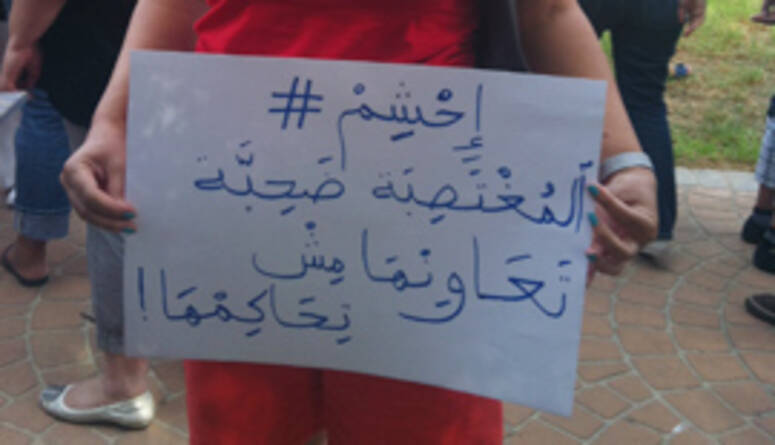 #إِحْشِمْ
اَلمُغْتَصِبَة ضَحِيَّة
تَعَاوِنْهَا مِشْ
تِحَاكِمْهَا!